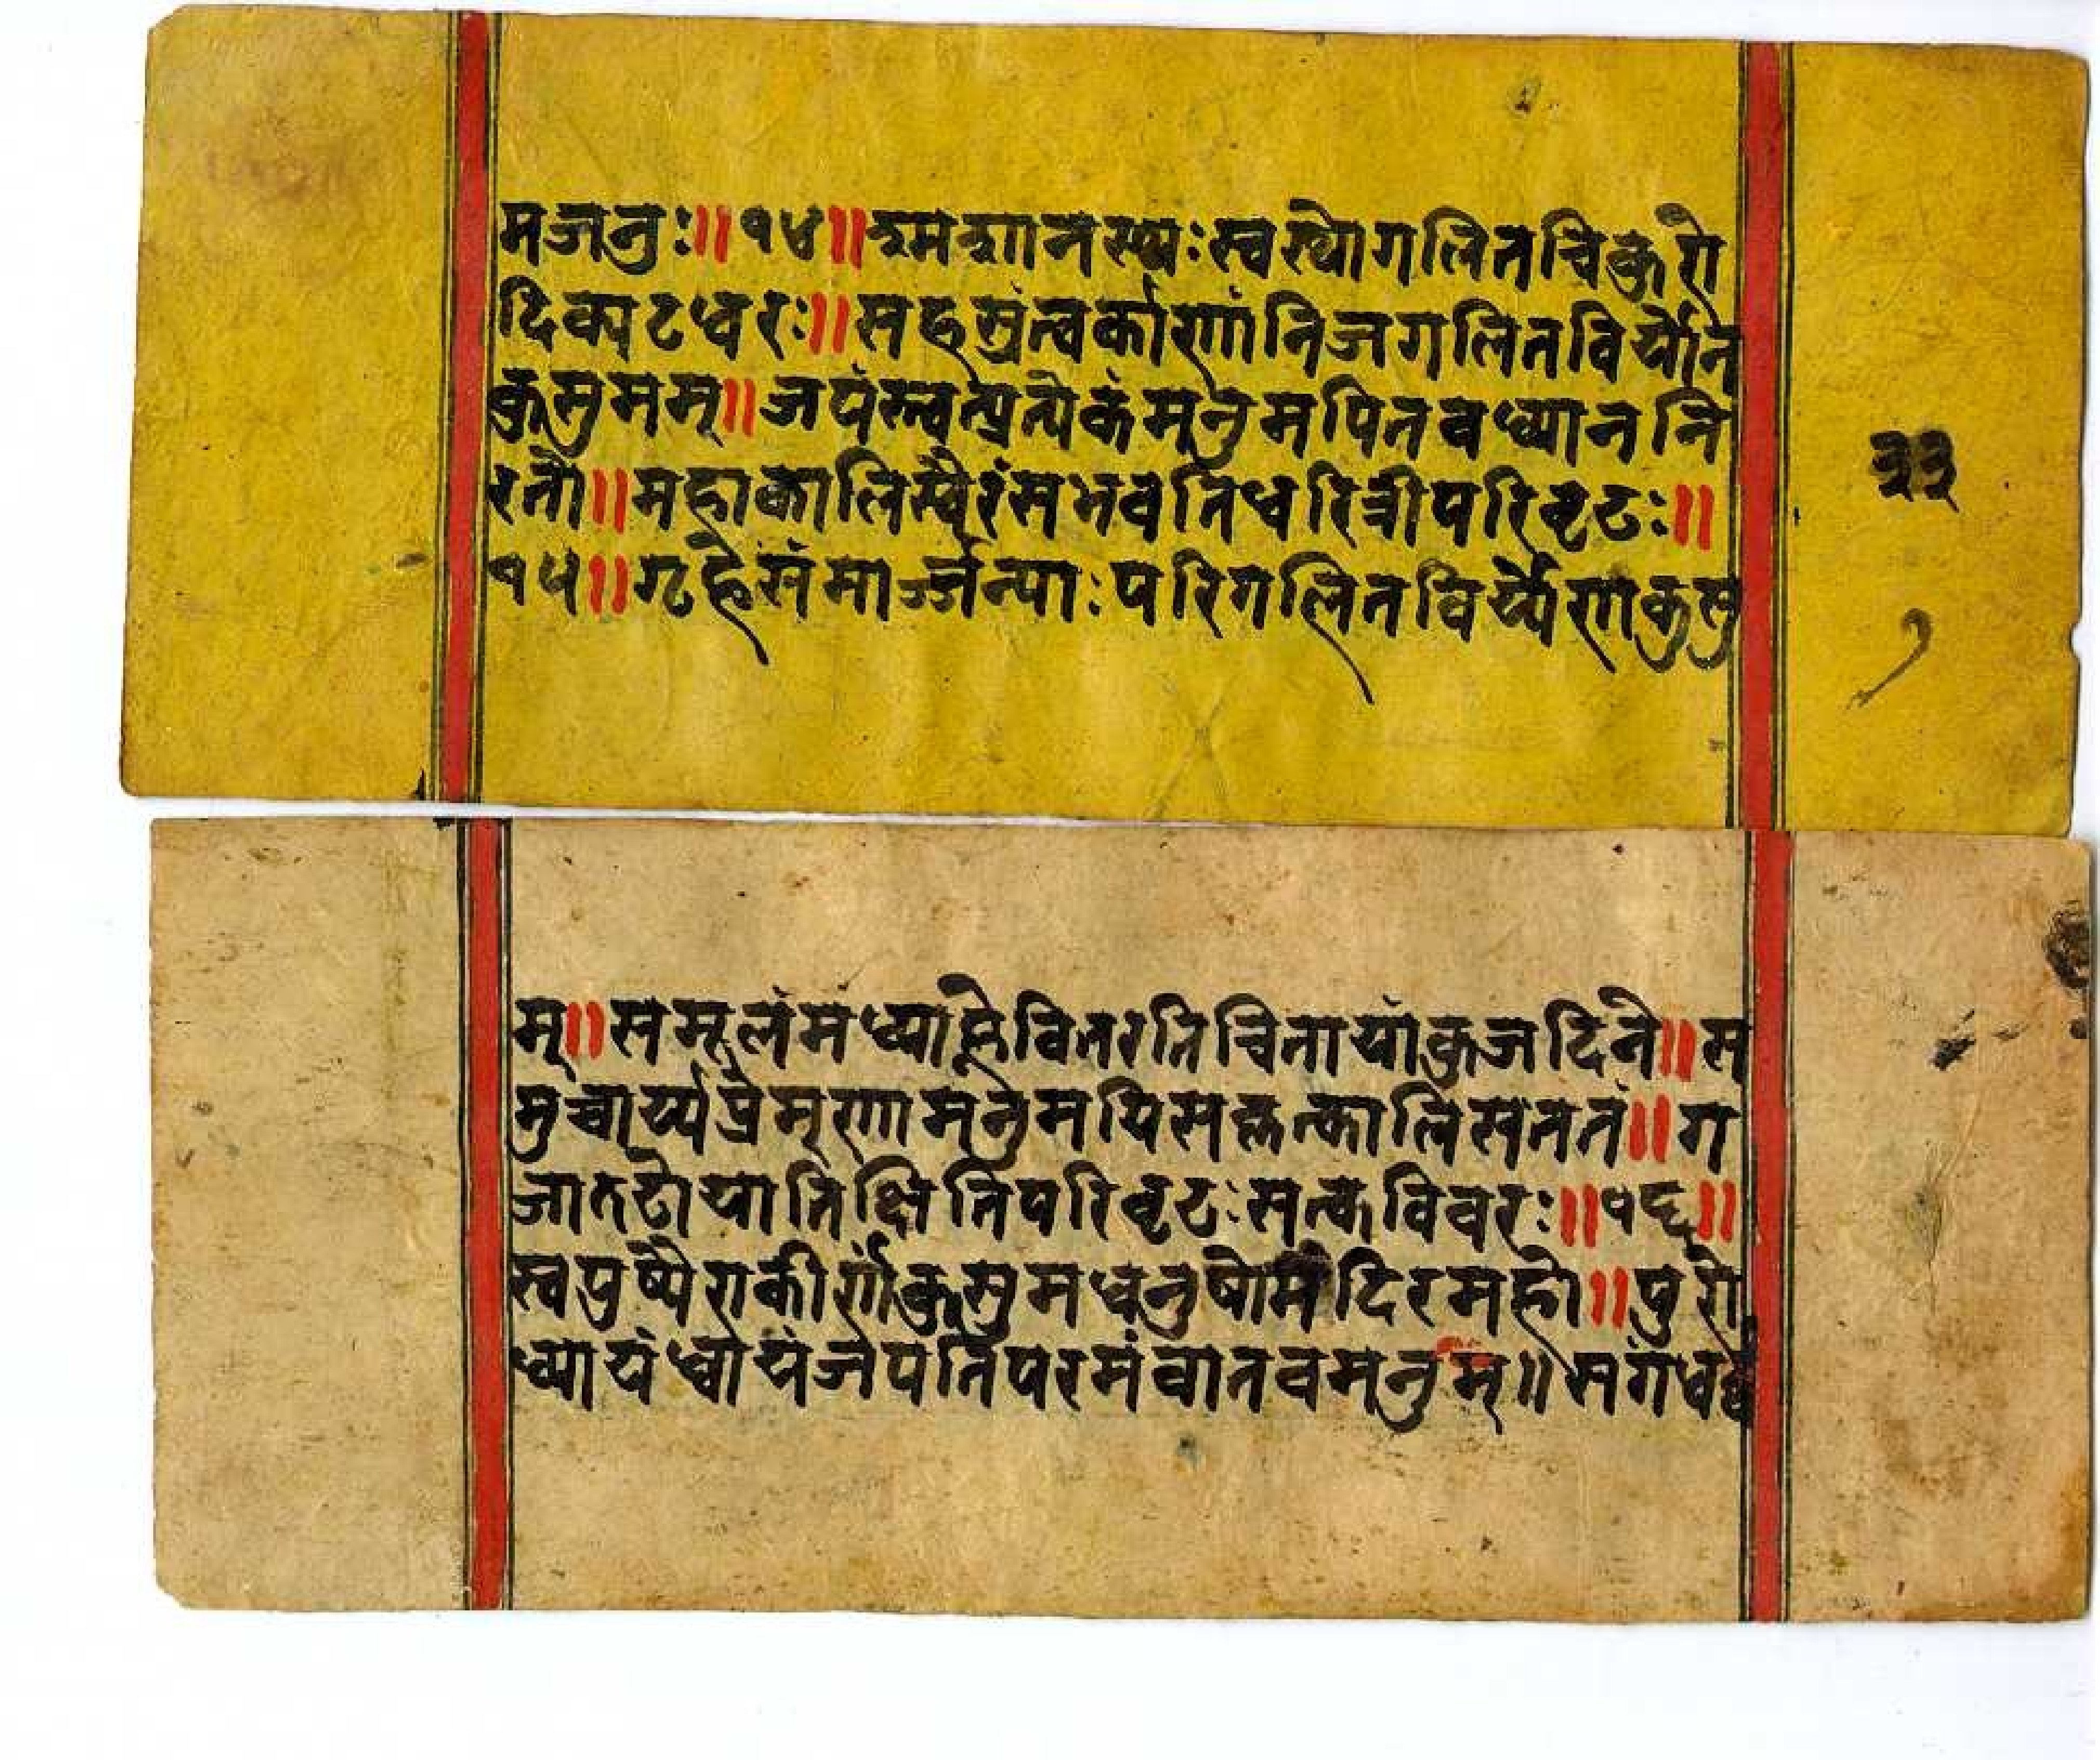 मजनुः॥१४॥श्मशानस्थःस्वस्थोगलितचिकुरो
दिक्पटधरः॥सहस्रंत्वर्काणांनिजगलितविर्येन
कुसुमम्॥जपंस्त्वत्प्रत्येकंमनुमपितवध्याननि
रतो॥महाकालिस्वैरंसभवतिधरित्रीपरिवृढः॥
१५॥गृहेसंमार्ज्जन्याःपरिगलितविर्य्येणकुसु
३३
म्॥समूलंमध्याह्नेवितरतिचितायांकुजदिने॥स
मुचार्य्यप्रेम्णामनुमपिसकृत्कालिसततं॥ग
जारुढोयातिक्षितिपरिवृढःसत्कविवरः॥१६॥
स्वपुष्पैराकीर्णंकुसुमधनुषोमंदिरमहो॥पुरो
ध्यायंध्यायंजपतिपरमंवातवमनुम्॥सगंधर्व